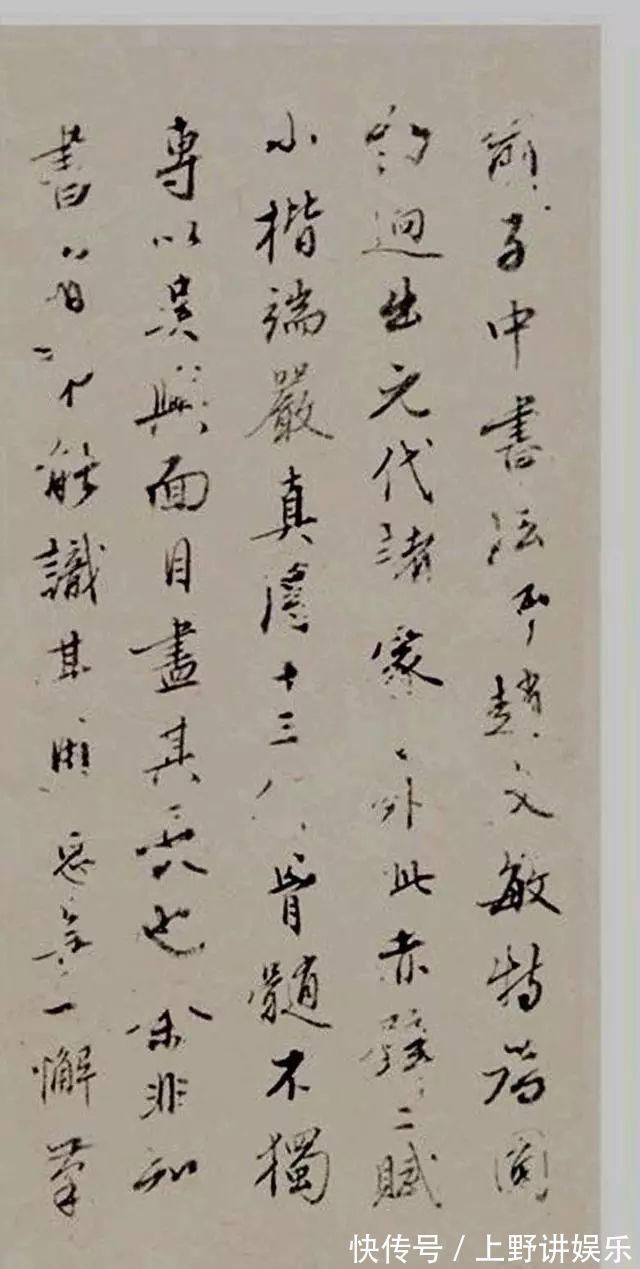 俞子中書法趙文敏特為圓
勁迥出元代諸家之外此赤壁二賦
小楷端嚴真得十三行骨髓不獨
專以吳興面目盡其長也余非知
書者不能識其用意無一懈筆
快传号/上野讲娱乐